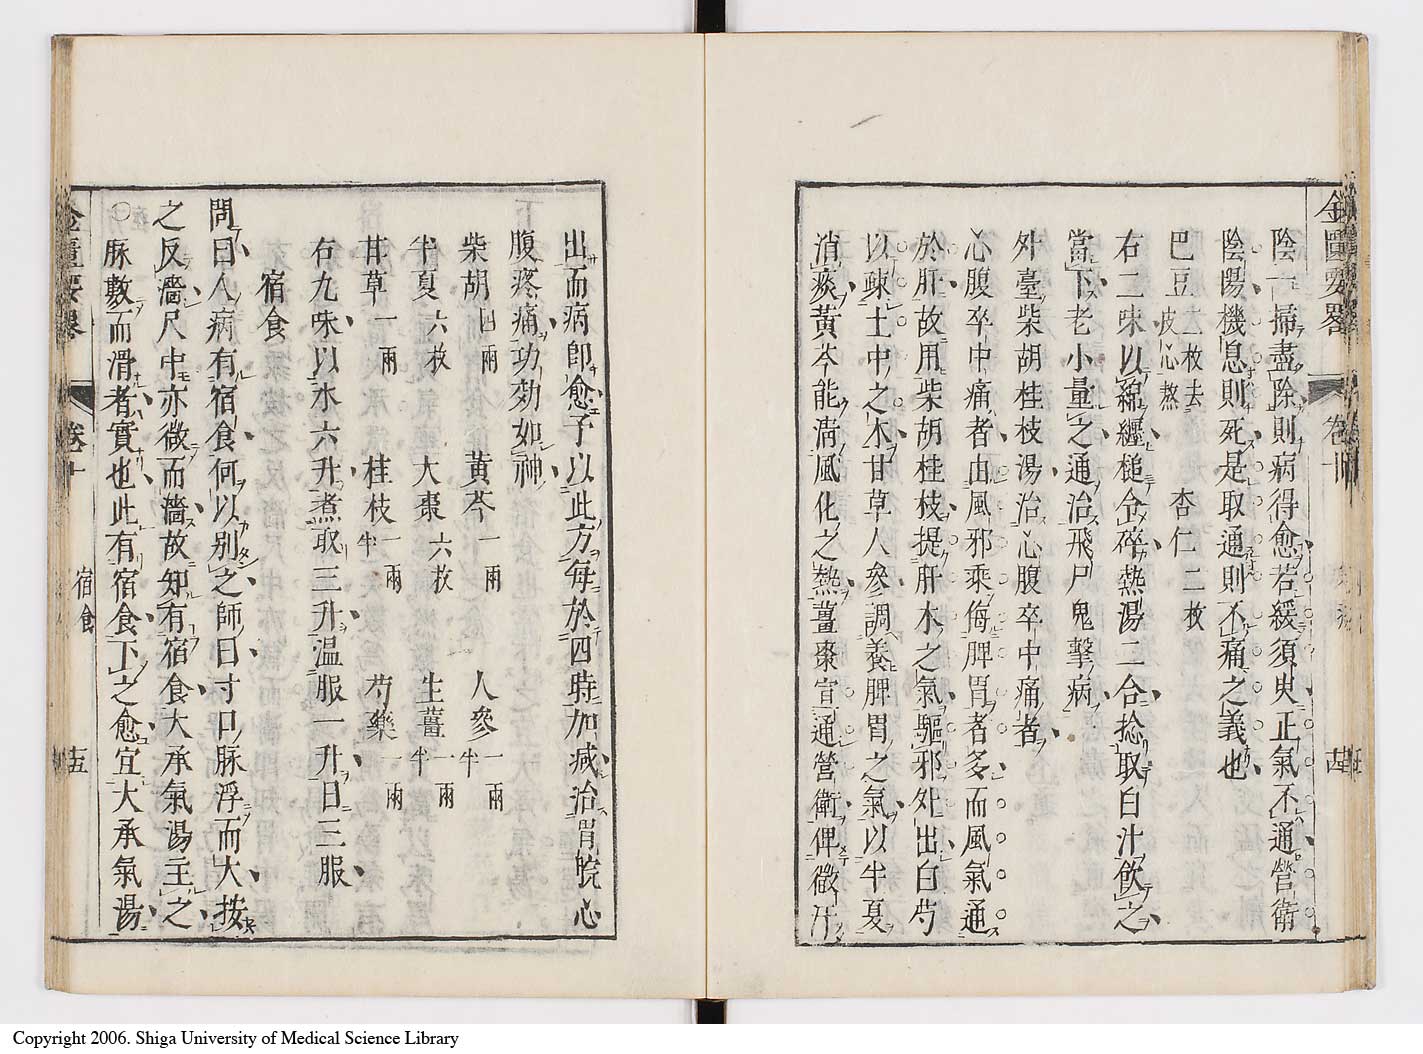 金匱要畧 卷十
陰一掃盡除則病得愈若緩須臾正氣不通營衛
陰陽機息則死是取通則不痛之義也
巴豆二枚去皮心熬 杏仁二枚
右二味以綿纏槌令碎熱湯二合捻取白汁飲之
當下老小量之通治飛尸鬼擊病
外臺柴胡桂枝湯治心腹卒中痛者
心腹卒中痛者由風邪乘侮脾胃者多而風氣通
於肝故用柴胡桂枝提肝木之氣驅邪外出白芍
以疎土中之木甘草人參調養脾胃之氣以半夏
消痰黃芩能清風化之熱薑棗宣通營衛俾微汗
出而病即愈予以此方每於四時加减治胃脘心
腹疼痛功効如神
柴胡四兩 黃芩一兩半 人參一兩半
半夏六枚 大棗六枚 生薑一兩半
甘草一兩 桂枝一兩半 芍藥一兩半
右九味以水六升煮取三升温服一升日三服
宿食
問曰人病有宿食何以别之師曰寸口脉浮而大按
之反濇尺中亦微而濇故知有宿食大承氣湯主之
○脉數而滑者實也此有宿食下之愈宜大承氣湯
金匱要畧 卷十 宿食 十五